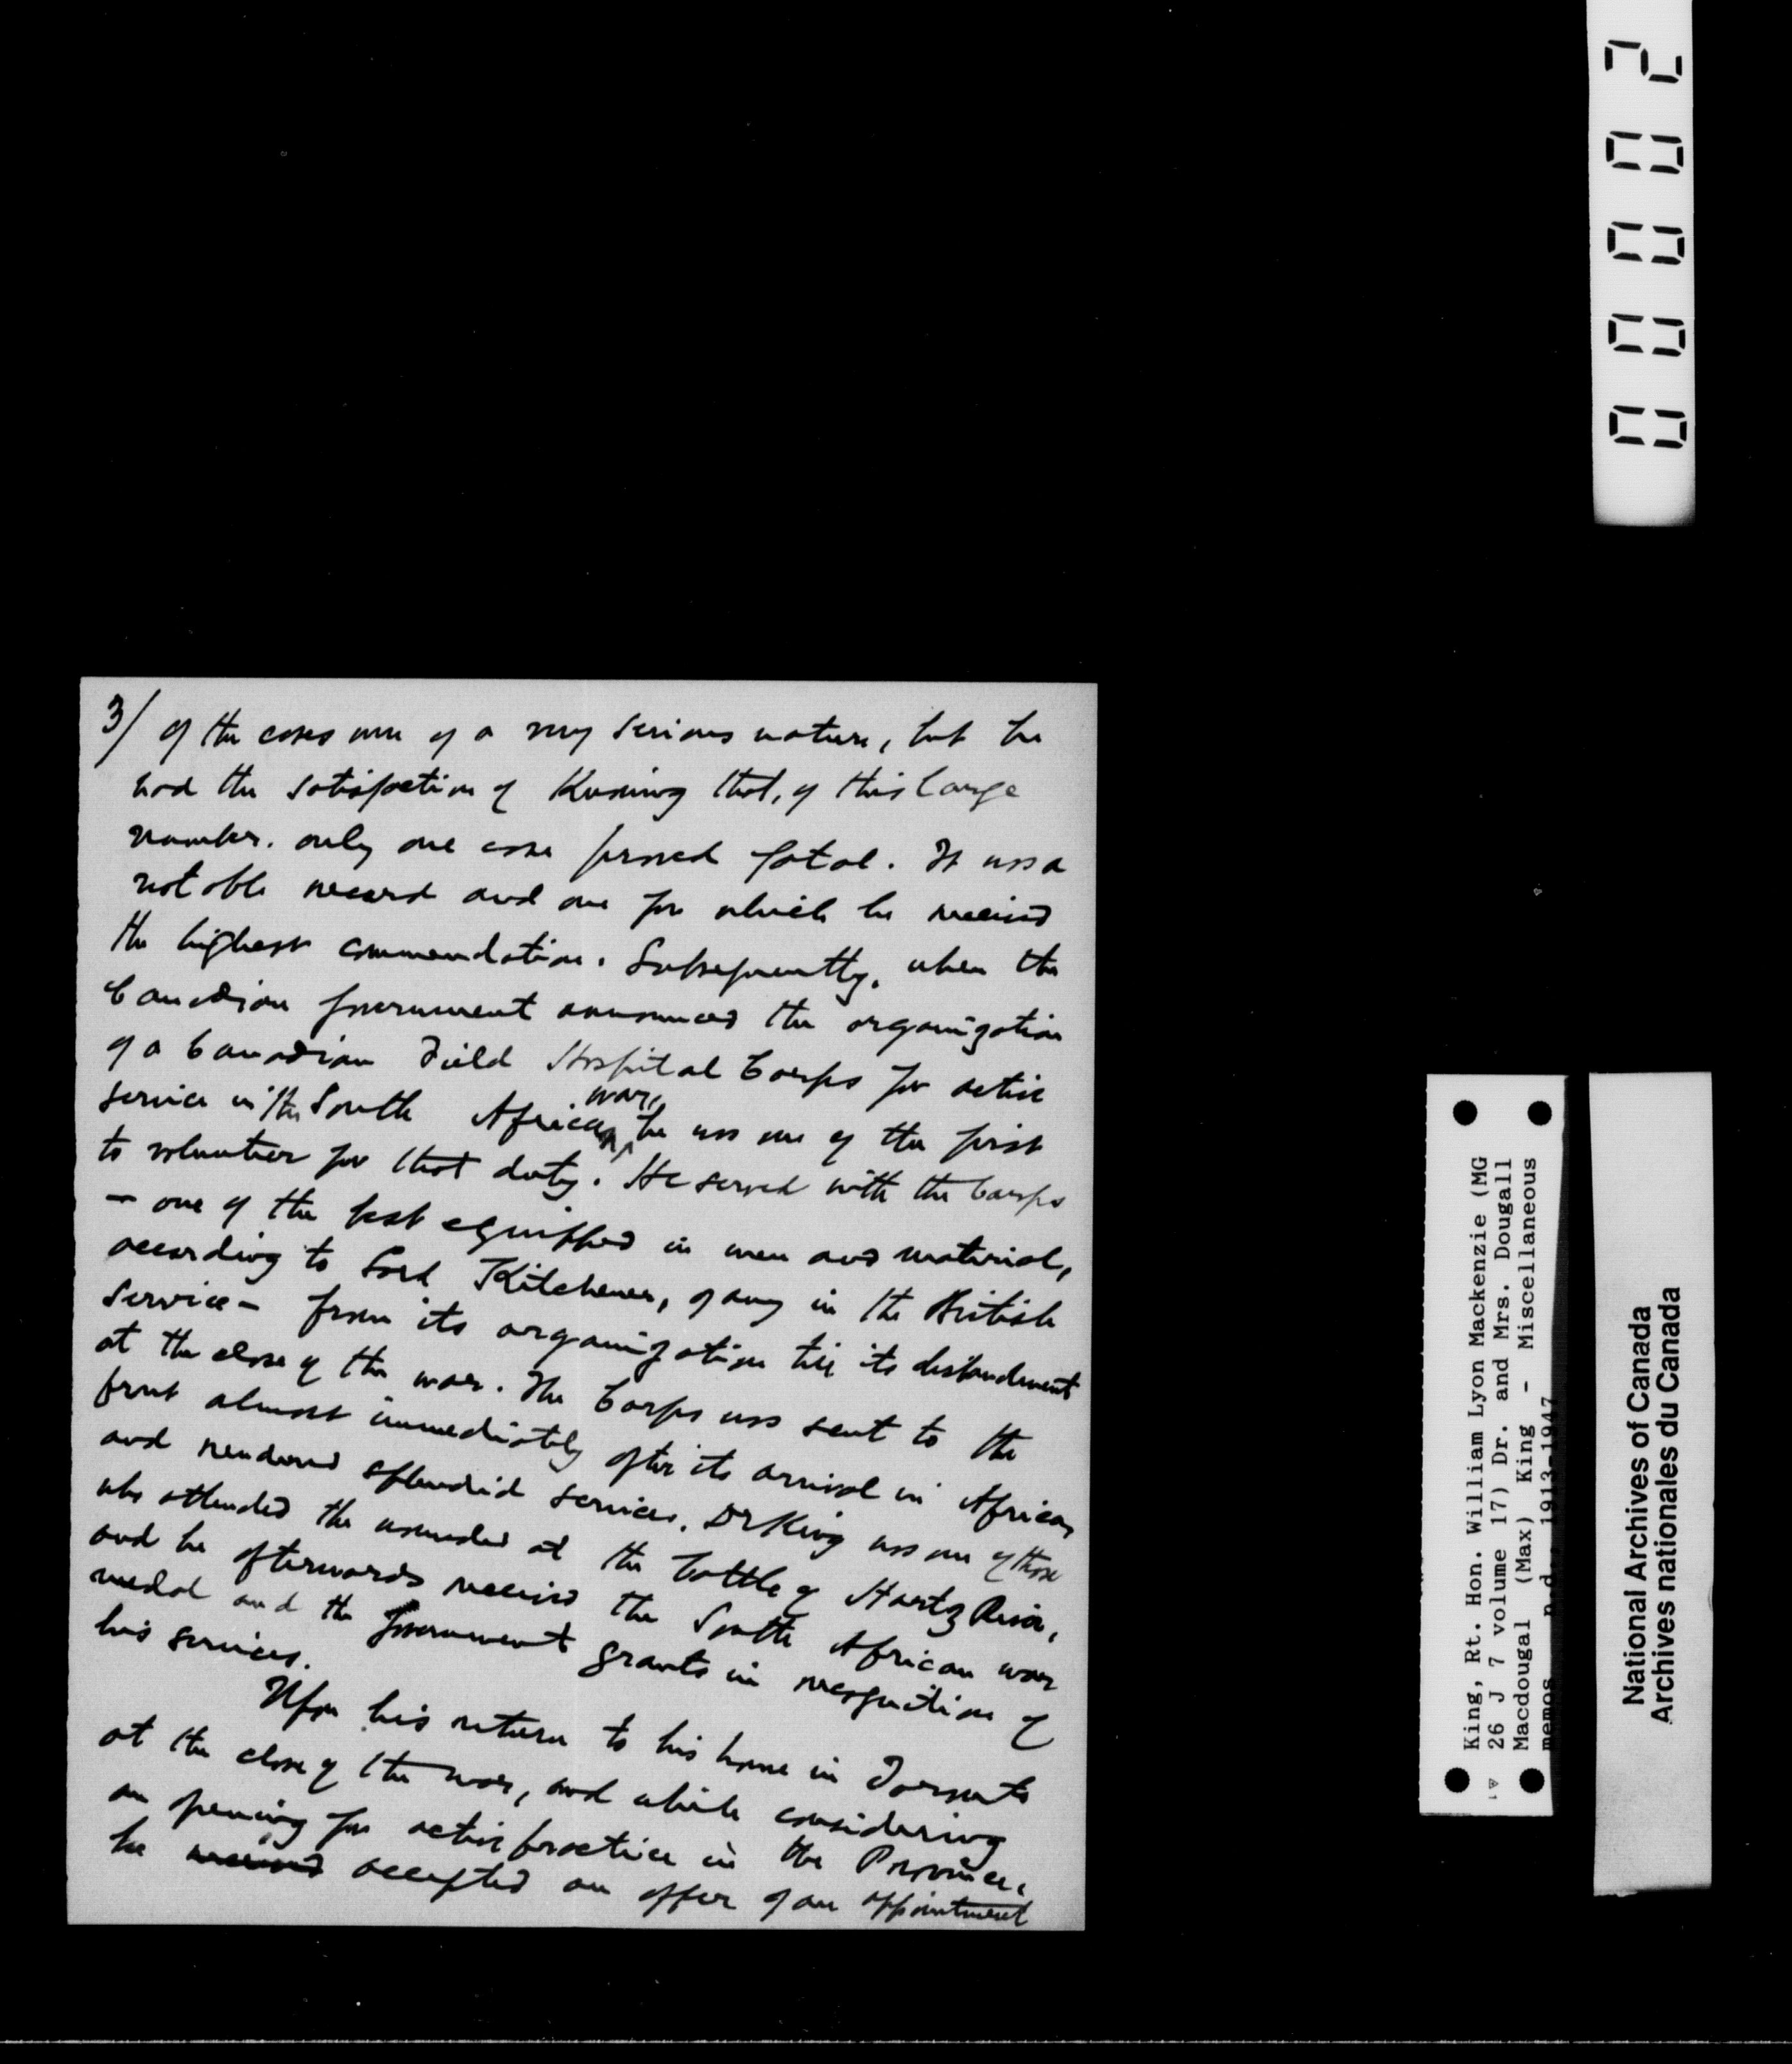 3/ of the cases were of a very serious nature, but he
had the satisfaction of knowing that, of this large
number, only one case proved fatal. It was a
notable record and one for which he received
the highest commendation. Subsequently, when the
Canadian Government announced the organization
of a Canadian Field Hospital Corps for active
service in the South African war, he was one of the first
to volunteer for that duty. He served with the Corps
– one of the best equipped in men and material,
according to Lord Kitchener, of any in the British
Service – from its organization till its disbandment
at the close of the war. The Corps was sent to the
front almost immediately after its arrival in Africa,
and rendered splendid services. Dr King was one of those
who attended the wounded at the battle of Hartz River,
and he afterwards received the South African war
medal and the Government grants in recognition of
his services.
Upon his return to his home in Toronto
at the close of the war, and while considering
an opening for active practice in the Province,
he received accepted an offer of an appointment
00002
King, Rt. Hon. William Lyon Mackenzie (MG
26 J 7 volume 17) Dr. and Mrs. Dougall
Macdougal (Max) King - Miscellaneous
memos n.d., 1913-1947
National Archives of Canada
Archives nationales du Canada